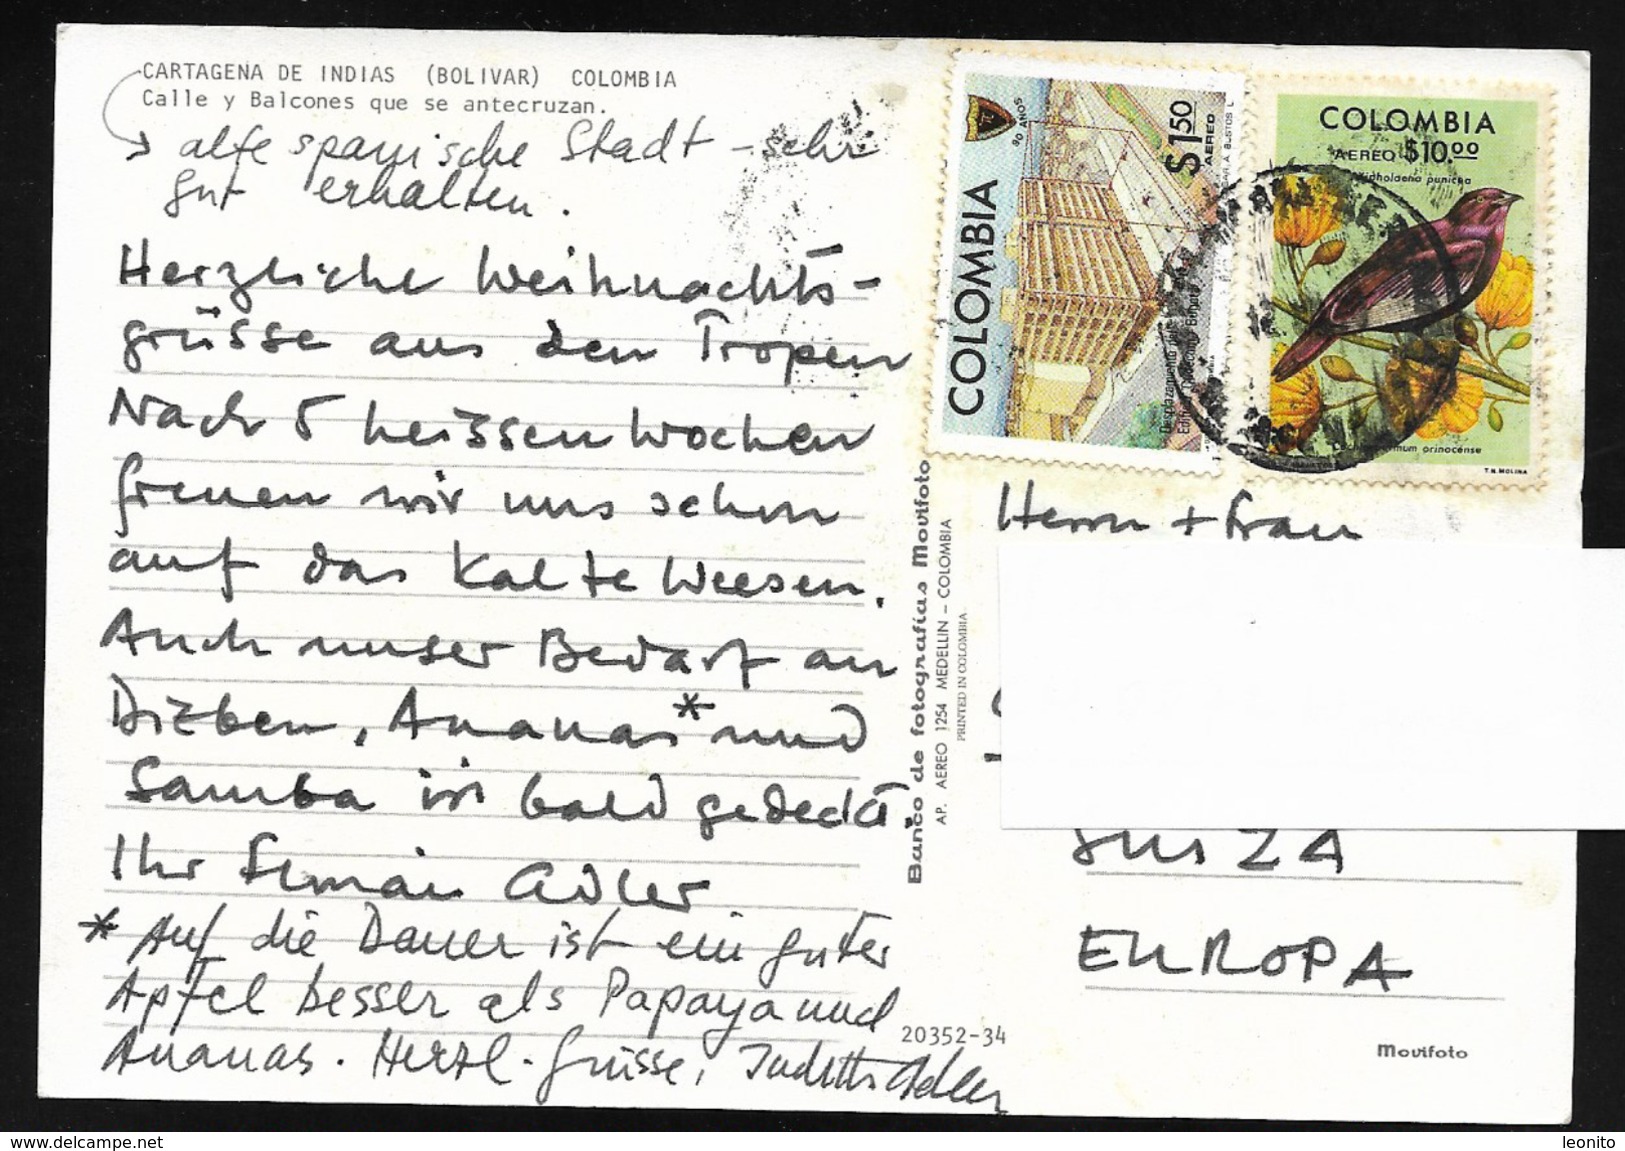 CARTAGENA DE INDIAS (BOLIVAR) COLOMBIA
Calle y Balcones que se antecruzan.
alte spanische Stadt - sehr
gut erhalten.
Herzliche Weihnachts-
grüsse aus den Tropen
Nach 5 heissen Wochen
freuen wir uns schon
auf das Kalte Weesen.
Auch unser Bedarf an
Ananas * und
Samba ist bald gedeckt.
Ihr Adler
* Auf die Dauer ist ein guter
Apfel besser als Papaya und
Ananas. Herzl. Grüsse, Judith Adler
Banco de fotografías Movifoto
AP. AEREO 1254 MEDELLIN - COLOMBIA
PRINTED IN COLOMBIA
20352-34
COLOMBIA
$1.50
AEREO
90 AÑOS
COLOMBIA
AEREO $10.00
Xipholaena punicea
orinocense
T.N. MOLINA
Herrn + Frau
SUIZA
EUROPA
Movifoto
leonito